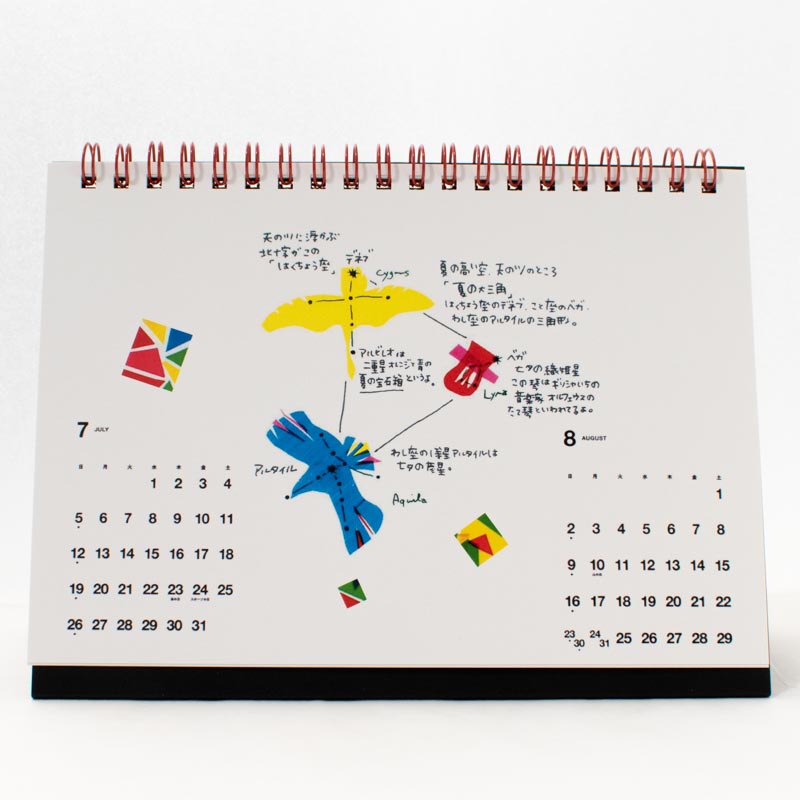 天の川に浮かぶ
北十字がこの
「はくちょう座」
デネブ
Cygnus
夏の高い空、天の川のところ
「夏の大三角」
はくちょう座のデネブ、こと座のベガ、
わし座のアルタイルの三角形。
アルビレオは
二重星オレンジと青の
夏の宝石箱というよ。
ベガ
七夕の織姫星
この琴はギリシャいちの
音楽家オルフェウスの
たて琴といわれてるよ。
Lyra
わし座の1等星アルタイルは
七夕の彦星。
アルタイル
Aquila
7 JULY
日 月 火 水 木 金 土
1 2 3 4
5 6 7 8 9 10 11
12 13 14 15 16 17 18
19 20 21 22 23 24 25
海の日 スポーツの日
26 27 28 29 30 31
8 AUGUST
日 月 火 水 木 金 土
1
2 3 4 5 6 7 8
9 10 11 12 13 14 15
山の日
16 17 18 19 20 21 22
23 30 24 31 25 26 27 28 29